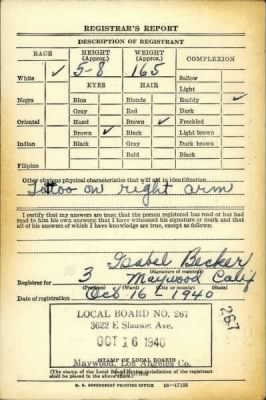 REGISTRAR'S REPORT
DESCRIPTION OF REGISTRANT
RACE HEIGHT (Approx.) WEIGHT (Approx.) COMPLEXION
White ✓ 5-8 165 Sallow
EYES HAIR Light
Negro Blue Blonde Ruddy ✓
Gray Red Dark
Oriental Hazel Brown ✓ Freckled
Brown ✓ Black Light brown
Indian Black Gray Dark brown
Bald Black
Filipino
Other obvious physical characteristics that will aid in identification
Tattoo on right arm
I certify that my answers are true; that the person registered has read or has had
read to him his own answers; that I have witnessed his signature or mark and that
all of his answers of which I have knowledge are true, except as follows:
Isabel Becker
(Signature of registrar)
Registrar for 3 Maywood Calif
(Precinct) (Ward) (City or county) (State)
Date of registration Oct 16 - 1940
LOCAL BOARD NO. 267
3622 E Slauson Ave.
OCT 16 1940
STAMP OF LOCAL BOARD
Maywood Los Angeles Co.
(The stamp of the Local Board having jurisdiction of the registrant
shall be placed in the above space)
267
U. S. GOVERNMENT PRINTING OFFICE 16-17105